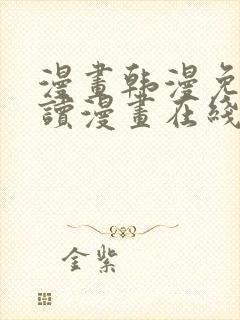 漫畫韩漫免
讀漫畫在綫
金紫